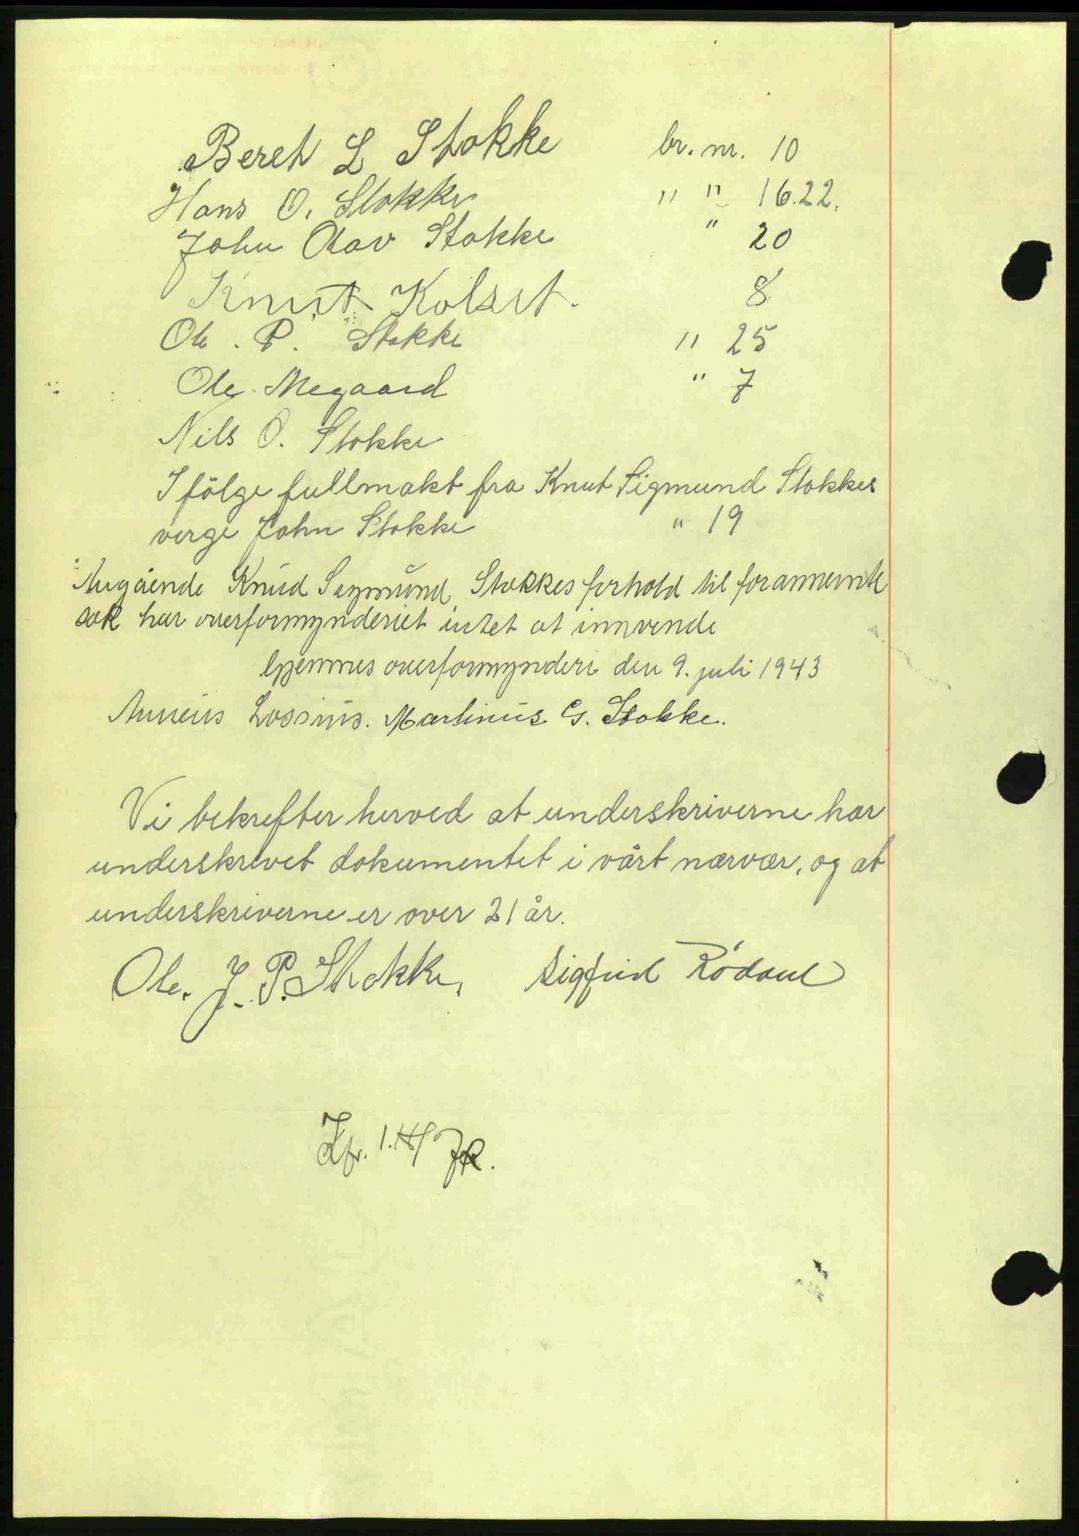 Beret L Stokke br. nr. 10
Hans O. Stokke " " 16.22.
John Olav Stokke " 20
Knut Kolset. 8
Ole. P. Stokke " 25
Ole Megaard " 7
Nils O. Stokke
Ifölge fullmakt fra Knut Sigmund Stokkes
verge John Stokke " 19
Angående Knud Sigmund Stokkes forhold til forannevnte
sak har overformynderiet intet at innvende
Hjemnes overformynderi den 9. juli 1943
Anneus Lossius. Martinus G. Stokke.
Vi bekrefter herved at underskriverne har
underskrivet dokumentet i vårt nærvær, og at
underskriverne er over 21 år.
Ole. J. P. Stokke. Sigfrid Rødahl